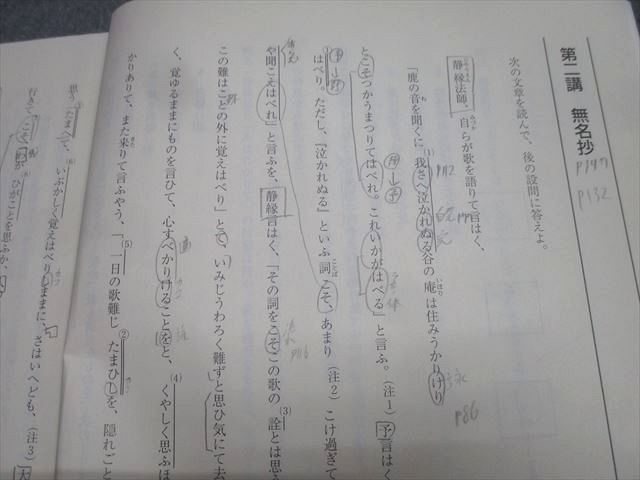 第二講　無名抄
p147
p132
次の文章を読んで、後の設問に答えよ。
静縁法師、自らが歌を語りて言はく、
「鹿の音を聞くに我さへ泣かれぬる谷の庵は住みうかりけり
とこそつかうまつりてはべれ。これいかがはべる」と言ふ。（注1）予言はく
はべり。ただし、『泣かれぬる』といふ詞こそ、あまり（注2）こけ過ぎて
や聞こえはべれ」と言ふを、静縁言はく、「その詞をこそこの歌の詮とは思ふ
この難はことの外に覚えはべり」とて、いみじうわろく難ずと思ひ気にて去
く、覚ゆるままにものを言ひて、心すべかりけることをと、くやしく思ふほ
かりありて、また来りて言ふやう、「一日の歌難じたまひしを、隠れごと
思うたまへて、いぶかしく覚えはべりしままに、さはいへども、（注3）大
行きてこそ、我がひがごとを思ふか、
p112
p86
p116